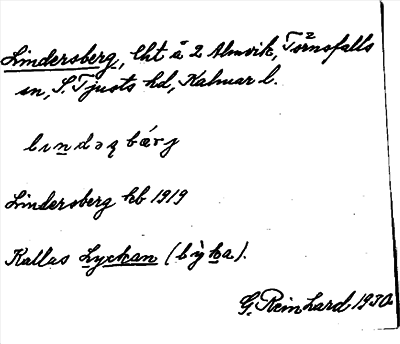 Lindersberg, lht å 2 Almvik, Törnsfalls
sn, S. Tjusts hd, Kalmar l.
lındəʂbærj
Lindersberg kb 1919
Kallas Lyckan (lỳka).
G. Reinhard 1930